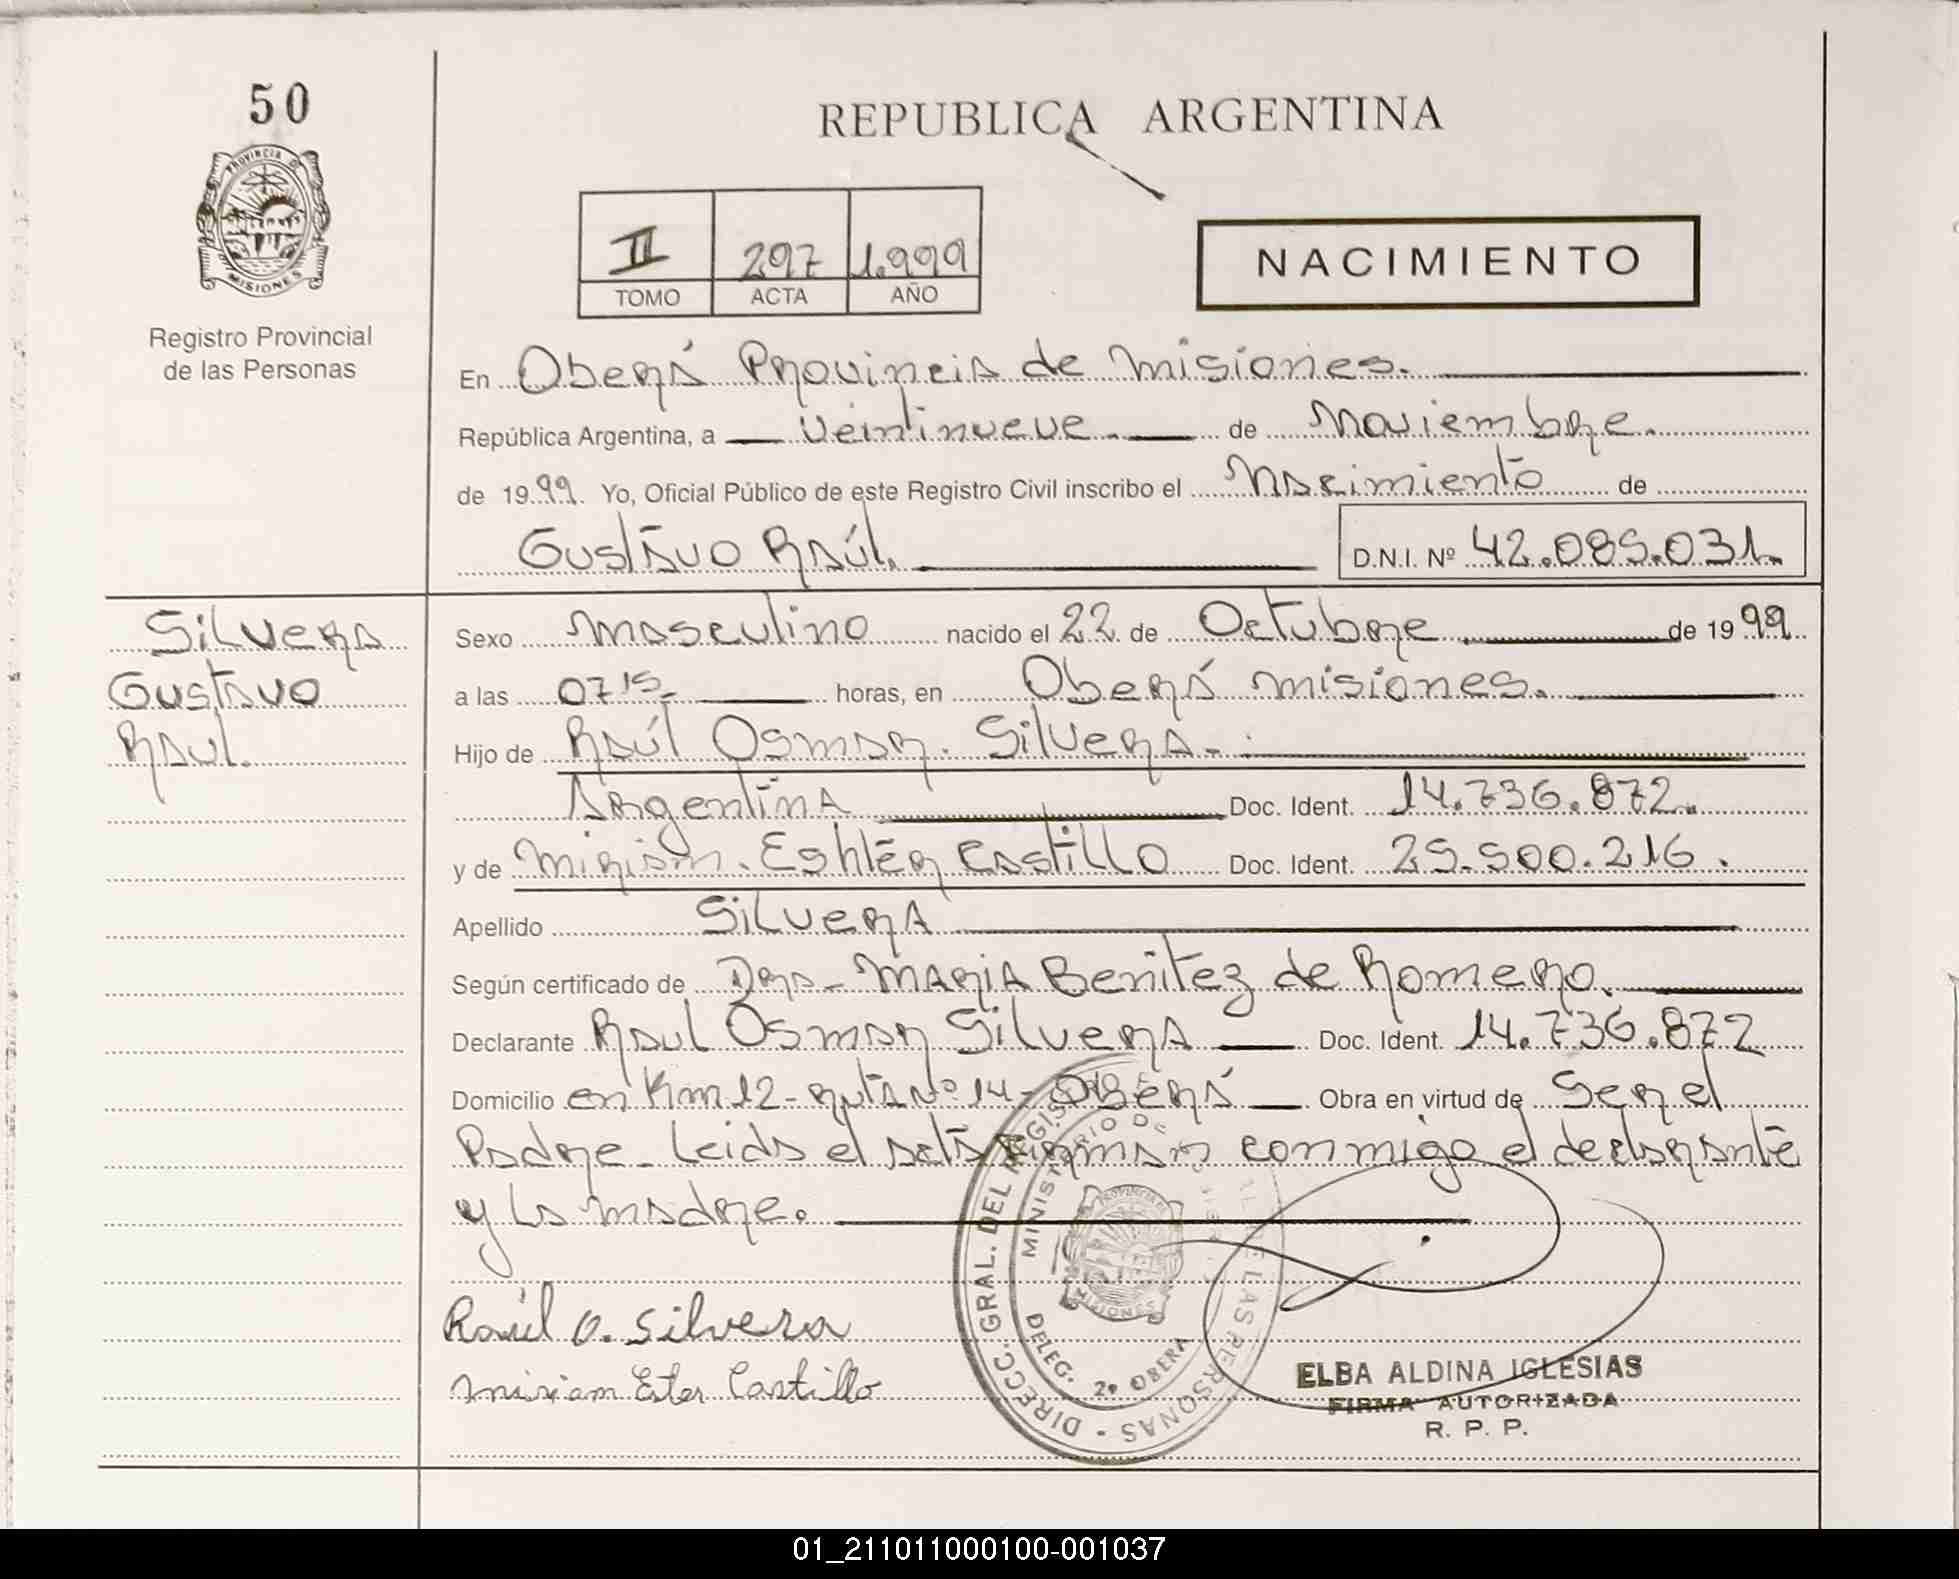 50
REPUBLICA ARGENTINA
PROVINCIA DE
MISIONES
II 297 1.999
TOMO ACTA AÑO
NACIMIENTO
Registro Provincial
de las Personas
En Oberá Provincia de Misiones.
República Argentina, a veintinueve. de Noviembre.
de 1999. Yo, Oficial Público de este Registro Civil inscribo el Nacimiento de
Gustavo Raúl. D.N.I. Nº 42.085.031.
Silvera
Gustavo
Raul.
Sexo masculino nacido el 22 de Octubre de 1999
a las 07 15 horas, en Oberá misiones.
Hijo de Raúl Osmar. Silvera.
Argentina Doc. Ident. 14.736.872.
y de Miriam. Eshter Castillo Doc. Ident. 25.500.216.
Apellido Silvera
Según certificado de Dra- Maria Benitez de Romero.
Declarante Raul Osmar Silvera Doc. Ident. 14.736.872
Domicilio en Km 12- ruta Nº 14- Oberá Obra en virtud de Ser el
Padre- Leida el acta firman conmigo el declarante
y la madre.
Raúl O. Silvera
Miriam Ester Castillo
DIRECC. GRAL. DEL REGIS LAS PERSONAS
MINISTERIO DE
PROVINCIA
MISIONES
DELEG. 2º OBERA
ELBA ALDINA IGLESIAS
FIRMA AUTORIZADA
R. P. P.
01_211011000100-001037